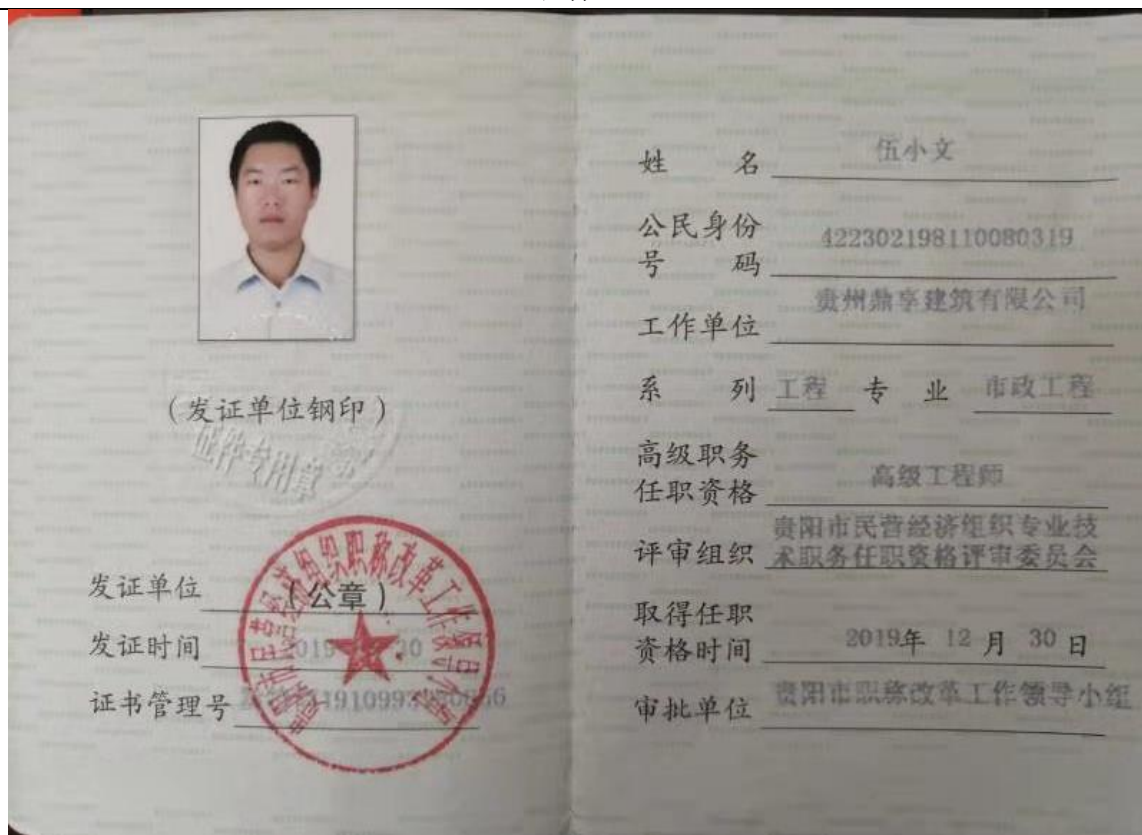 (发证单位钢印)
证件专用章
发证单位 (公章)
发证时间 2019 30
证书管理号
姓名 伍小文
公民身份号码 422302198110080319
工作单位 贵州鼎享建筑有限公司
系列 工程 专业 市政工程
高级职务
任职资格 高级工程师
评审组织 贵阳市民营经济组织专业技
术职务任职资格评审委员会
取得任职
资格时间 2019年 12月 30日
审批单位 贵阳市职称改革工作领导小组